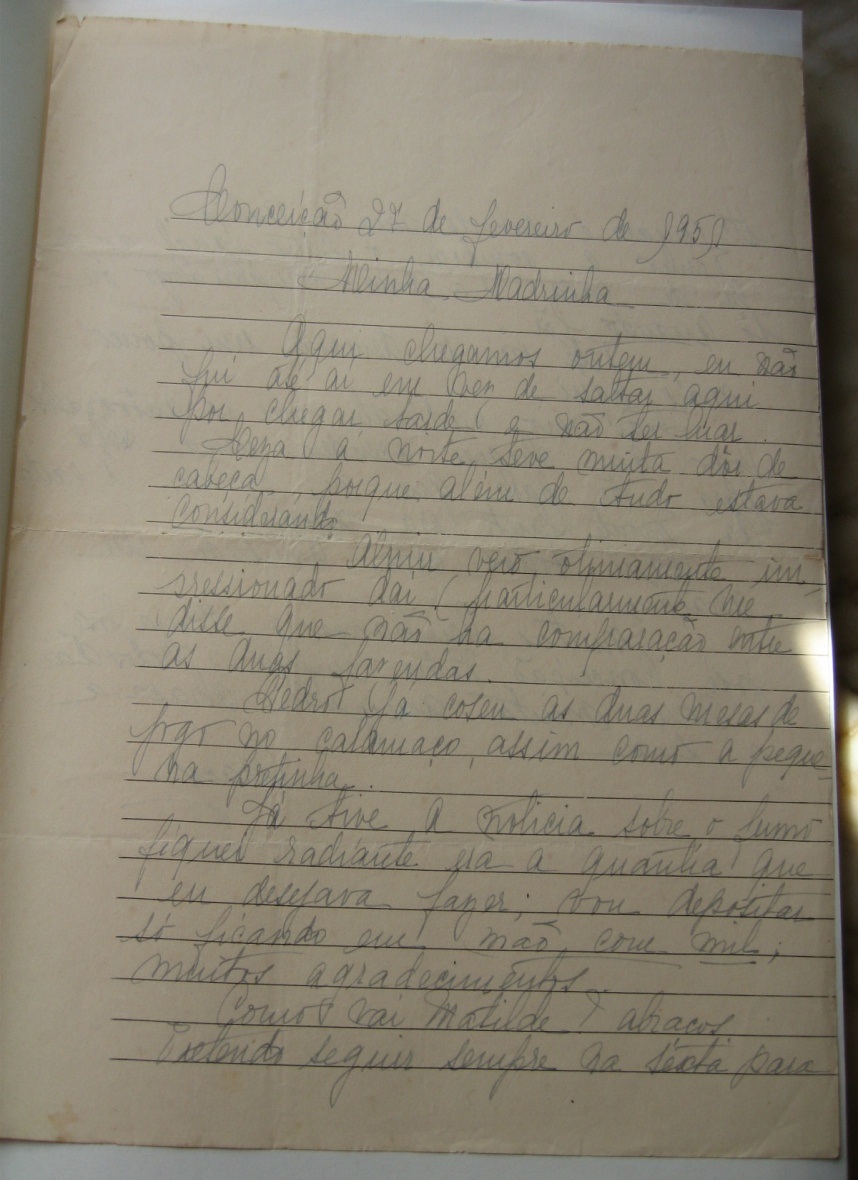 Conceição 27 de fevereiro de 1951
Minha Madrinha
Aqui chegamos ontem, eu não
fui até aí em vez de saltar aqui
por chegar tarde e não ter luar.
a noite teve muita dôr de
cabeça, porque além de tudo estava
considerando
veio otimamente im-
pressionado daí (particularmente me
disse que não ha comparação entre
as duas fazendas.
Pedro já coseu as duas mesas de
jogo no calamaço, assim como a peque-
na pretinha.
Já tive a noticia sobre o fumo
fiquei radiante era a quantia que
eu desejava fazer; vou depositar
só ficando em mão com mil;
muitos agradecimentos.
Como vai Matilde? abraços
Pretendo seguir sempre na sexta para